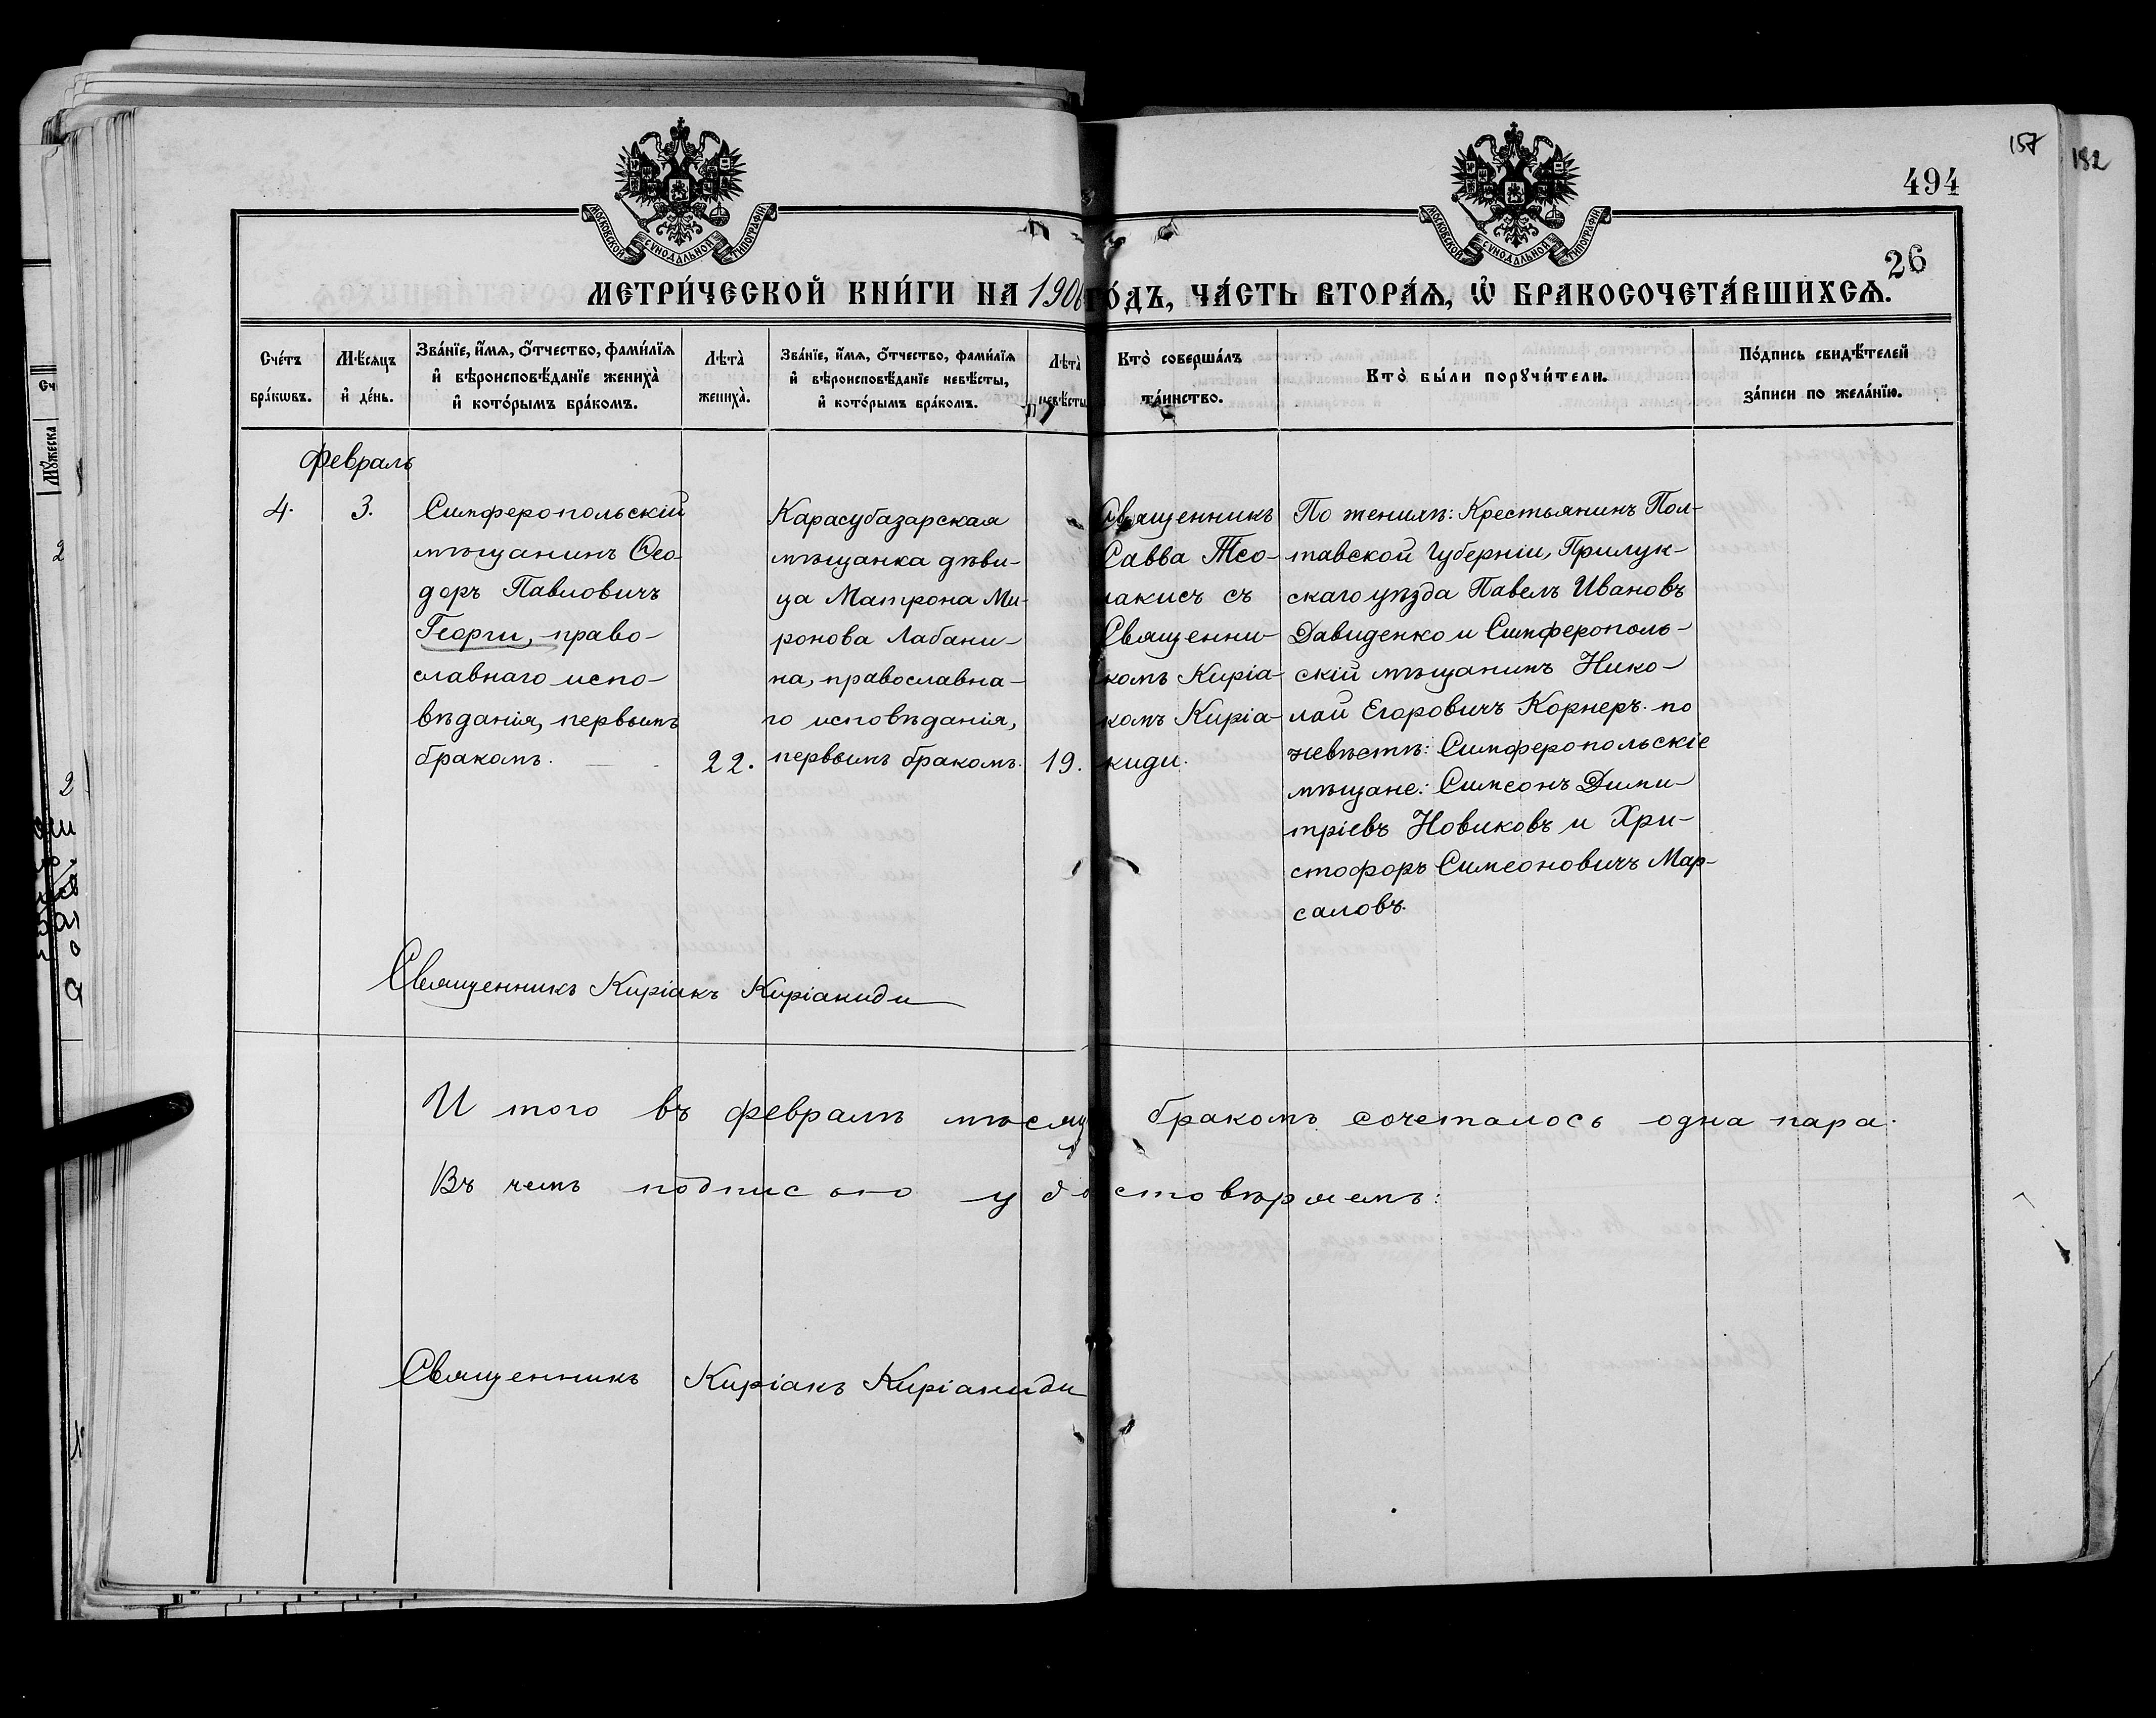 157
182
494
26
МОСКОВСКОЙ СѴНОДАЛЬНОЙ ТИПОГРАФІИ.
МОСКОВСКОЙ СѴНОДАЛЬНОЙ ТИПОГРАФІИ.
МЕТРИ́ЧЕСКОЙ КНИ́ГИ НА 1906 ГО́ДЪ, ЧА́СТЬ ВТОРА́Ѧ, Ѡ БРАКОСОЧЕТА́ВШИХСѦ.
Сче́тъ
бра́кѡвъ.
Мѣ́сѧцъ
и҆ де́нь.
Зва́нїе, и҆́мѧ, ѻ҆́тчество, фамі́лїѧ
и҆ вѣроисповѣ́данїе жениха̀
и҆ кото́рымъ бра́комъ.
Лѣта̀
жениха̀.
Зва́нїе, и҆́мѧ, ѻ҆́тчество, фамі́лїѧ
и҆ вѣроисповѣ́данїе невѣ́сты,
и҆ кото́рымъ бра́комъ.
Лѣта̀
невѣ́сты
Кто̀ соверша́лъ
та́инство.
Кто̀ бы́ли порꙋчи́тели.
По́дпись свидѣ́телей
за́писи по жела́нїю.
Февраль
4.
3.
Симферопольскій
мѣщанинъ Ѳео-
доръ Павловичъ
Георги, право-
славнаго испо-
вѣданія, первымъ
бракомъ.
22.
Карасубазарская
мѣщанка дѣви-
ца Матрона Ми-
ронова Лабани-
на, православна-
го исповѣданія,
первымъ бракомъ.
19.
Священникъ
Савва Тсо-
лакисъ съ
Священни-
комъ Киріа-
комъ Киріа-
киди.
По женихѣ: Крестьянинъ Пол-
тавской губерніи, Прилук-
скаго уѣзда Павелъ Ивановъ
Давиденко и Симферополь-
скій мѣщанинъ Нико-
лай Егоровичъ Корнеръ. по
невѣстѣ: Симферопольскіе
мѣщане: Симеонъ Дими-
тріевъ Новиковъ и Хри-
стофоръ Симеоновичъ Мар-
саловъ.
Священникъ Киріакъ Киріакиди
И того въ февралѣ мѣсяц бракомъ сочеталось одна пара.
Въ чемъ подписью удостовѣряемъ:
Священникъ Киріакъ Киріакиди